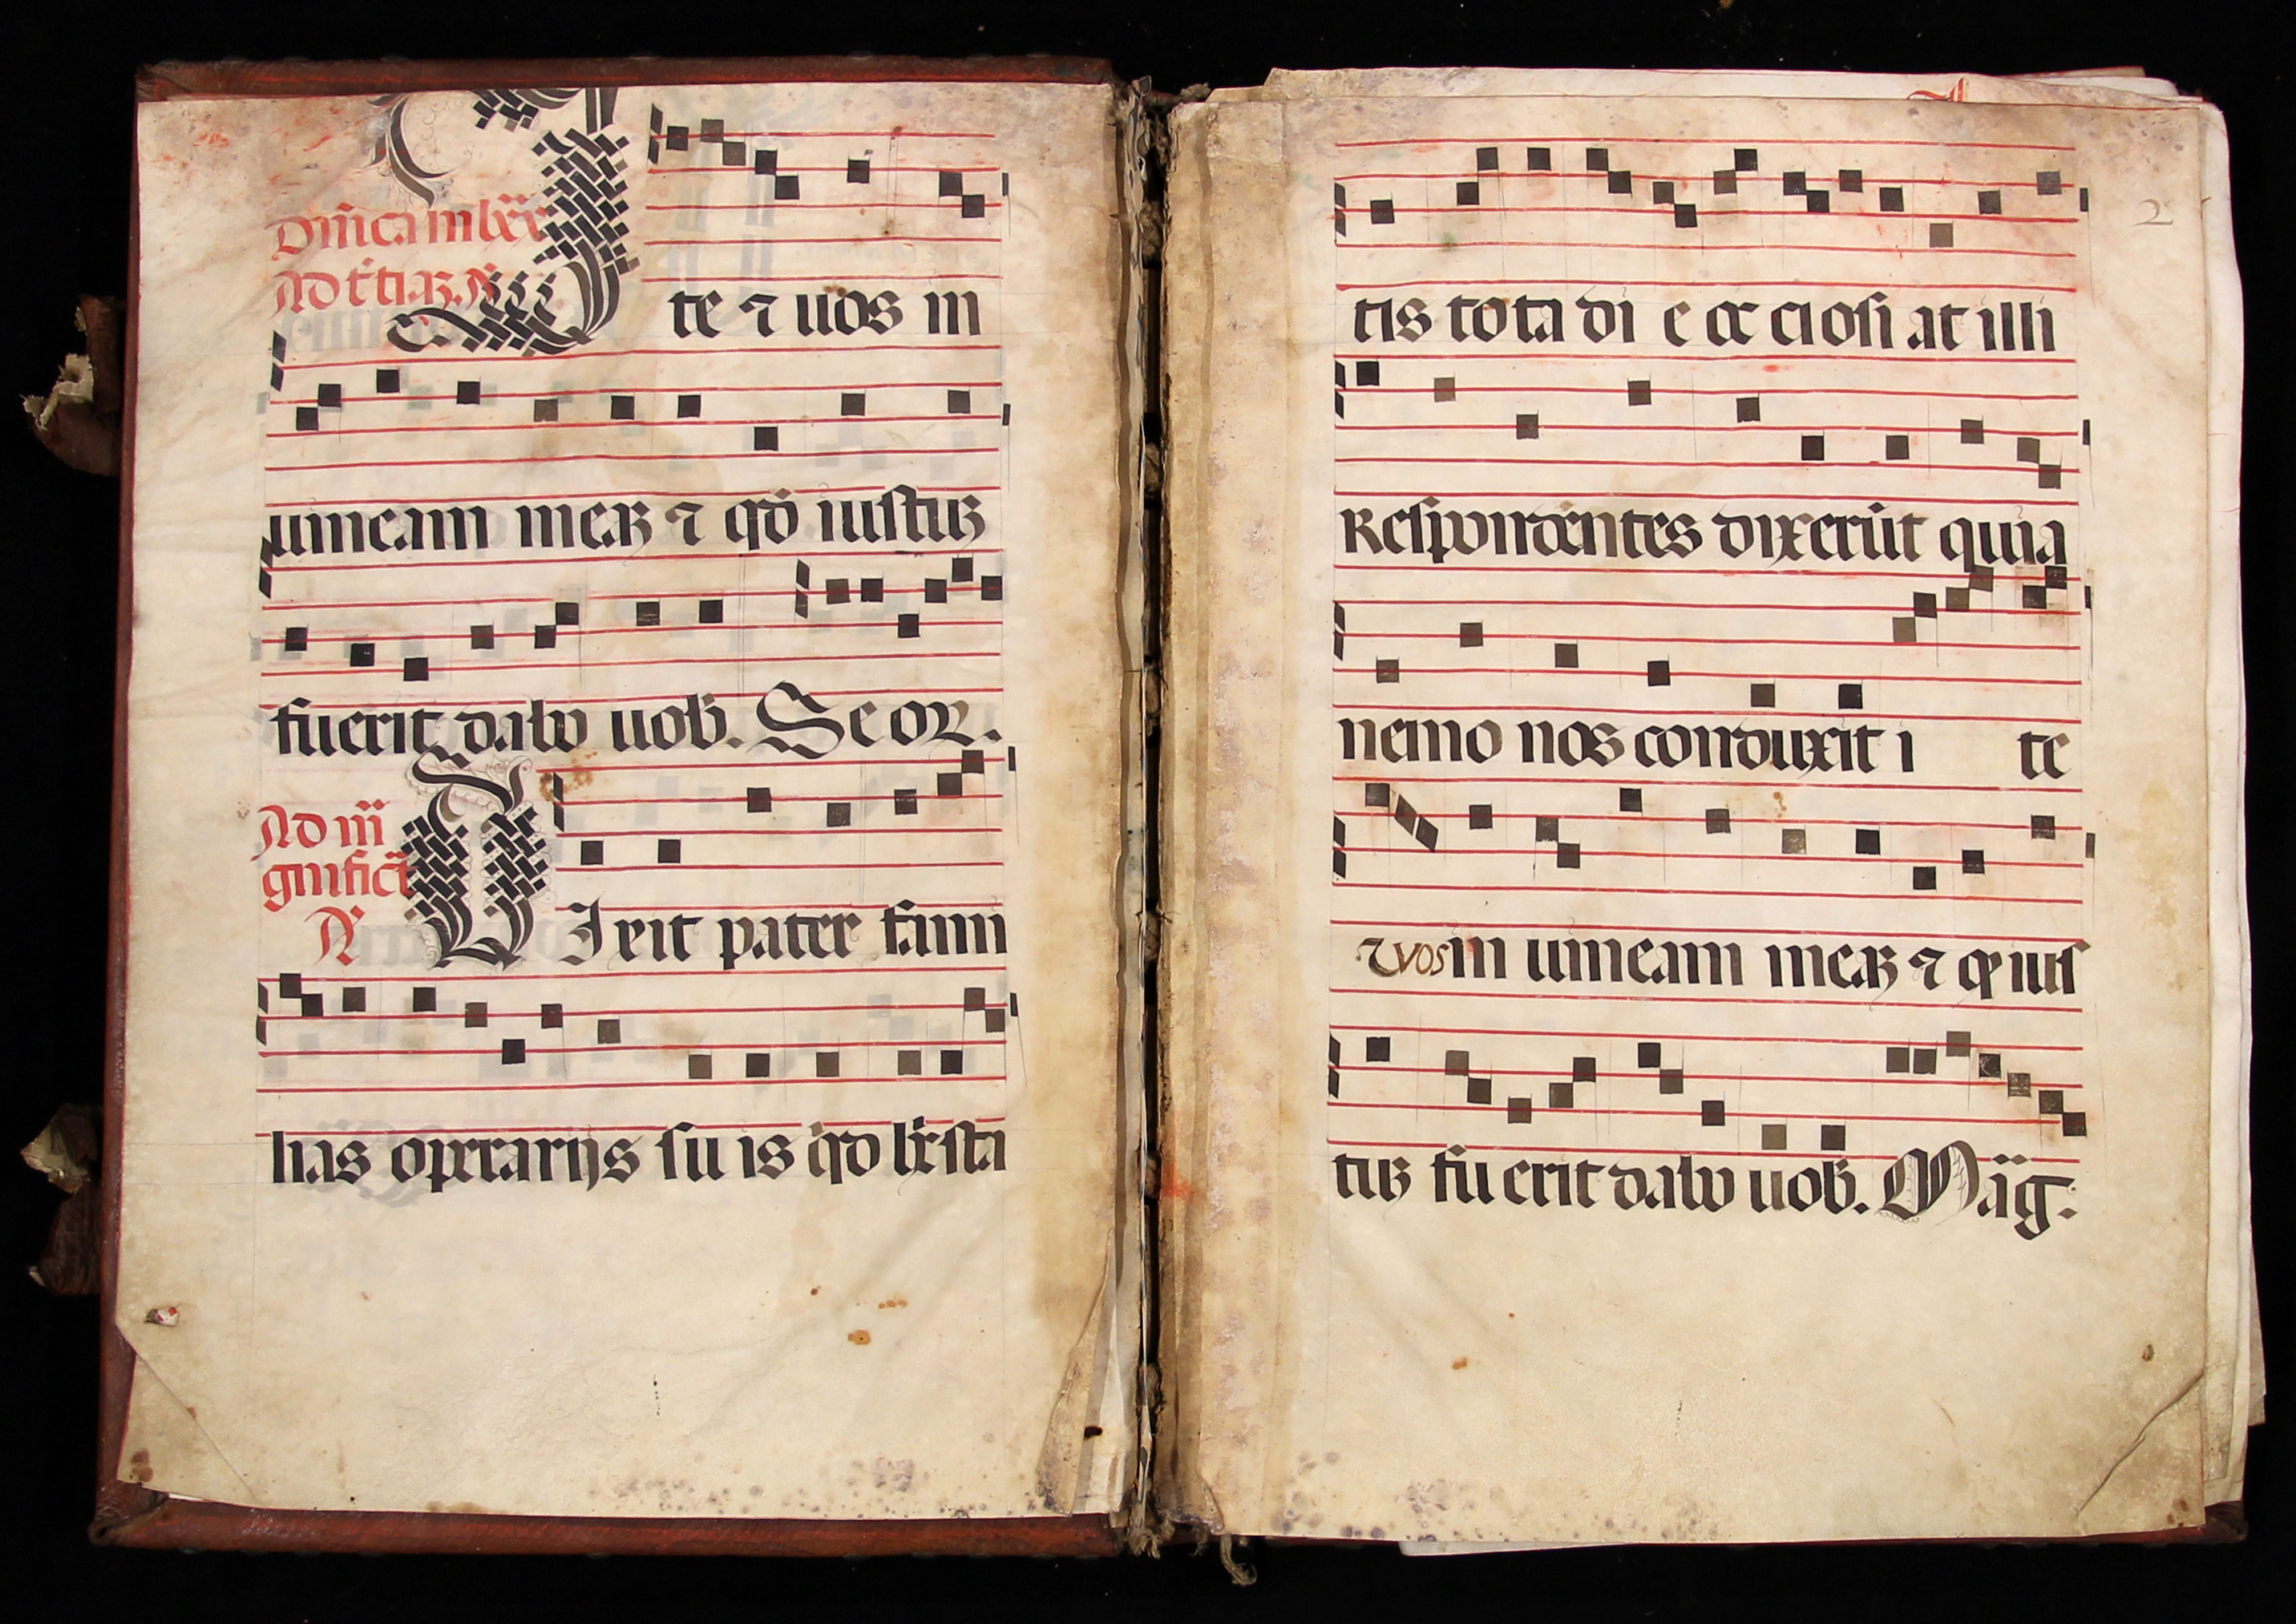 Dñica in lxx
Ad t̃tiaꝫ. Añ
I te ⁊ uos in
uineam meaꝫ ⁊ qđ iustuꝫ
fuerit dabo uob̃. Seor.
Ad mã
gnificãt
Añ
DIxit pater fami
lias operarijs su is qd hic sta
2
tis tota di e oc ciosi at illi
Respondentes dixerũt quia
nemo nos conduxit i te
⁊ vos in uineam meaꝫ ⁊ qđ ius
tuꝫ fu erit dabo uob̃. Mãg: